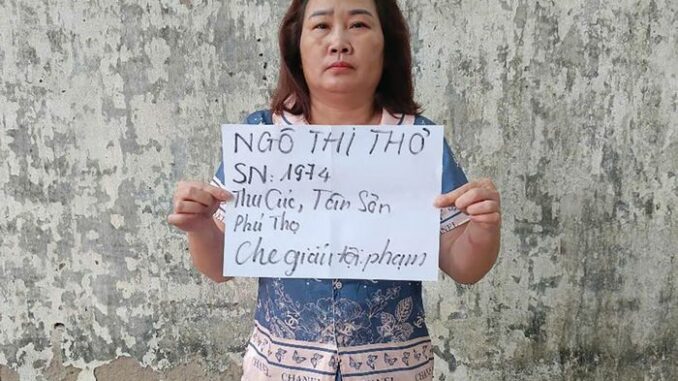 NGÔ THỊ THỎ
SN: 1974
Thu Cúc, Tân Sơn
Phú Thọ
Che giấu tội phạm
CHANEL